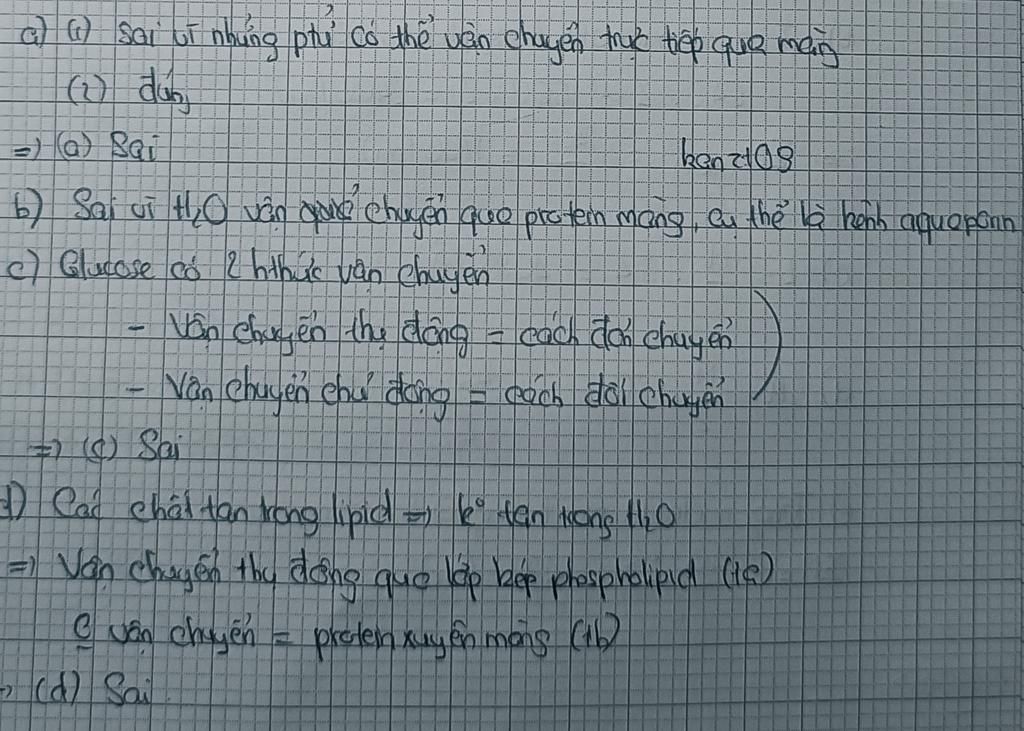 a) (1) Sai vì những ptử có thể vận chuyển trực tiếp qua màng
(2) đúng
=) (a) Sai
kenzt09
b) Sai vì H₂O vận chuyển qua protein màng, cụ thể là kênh aquaporin
c) Glucose có 2 hthức vận chuyển
- Vận chuyển thụ động = cách đơn chuyển
- Vận chuyển chủ động = cách đối chuyển
=) (c) Sai
d) Các chất tan trong lipid =) k° tan trong H₂O
=) Vận chuyển thụ động qua lớp kép phospholipid (1a)
vận chuyển = protein xuyên màng (1b)
(d) Sai